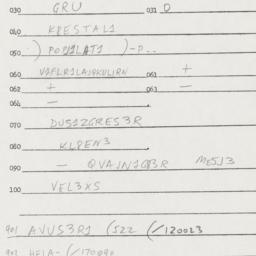 030 GRU 031 D
040 KRESTAL1
050 ) POPULAT1 )-P..
060 061 +
062 + 063 -
064 -
070 DUS1ZGRES3R
080 KLPEN3
090 - QVAJN1GB3R MES13
100 VEL3XS
901 AVUS3R1 (522 (/120023
902 HEIA- (/170090